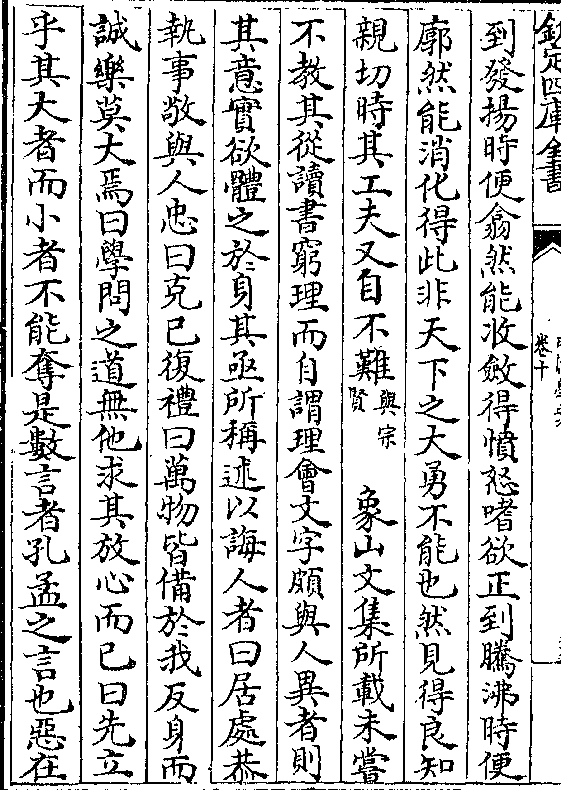 欽定四庫全書
卷十
到發揚時便翕然能收斂得憤怒嗜欲正到騰沸時便
廓然能消化得此非天下之大勇不能也然見得良知
親切時其工夫又自不難與宗賢 象山文集所載未嘗
不教其從讀書窮理而自謂理會文字頗與人異者則
其意實欲體之於身其亟所稱述以誨人者曰居處恭
執事敬與人忠曰克已復禮曰萬物皆備於我反身而
誠樂莫大焉曰學問之道無他求其放心而已曰先立
乎其大者而小者不能奪是數言者孔孟之言也惡在